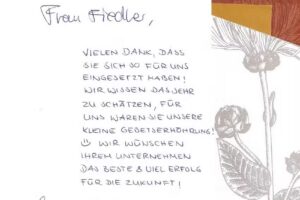 Frau Fiedler,
VIELEN DANK, DASS
SIE SICH SO FÜR UNS
EINGESETZT HABEN!
WIR WISSEN DAS SEHR
ZU SCHÄTZEN, FÜR
UNS WAREN SIE UNSERE
KLEINE GEBETSERHÖRUNG!
☺ WIR WÜNSCHEN
IHREM UNTERNEHMEN
DAS BESTE & VIEL ERFOLG
FÜR DIE ZUKUNFT!